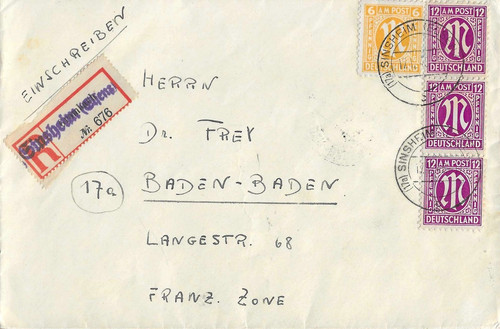 EINSCHREIBEN
6 AM POST 6
PFENNIG
DEUTSCHLAND
12 AM POST 12
PFENNIG
DEUTSCHLAND
12 AM POST 12
PFENNIG
DEUTSCHLAND
12 AM POST 12
PFENNIG
DEUTSCHLAND
(17a) SINSHEIM
(17a) SINSHEIM
R
Sinsheim (Elsenz)
Nr. 676
HERRN
DR. FREY
17a
BADEN-BADEN
LANGESTR. 68
FRANZ. ZONE